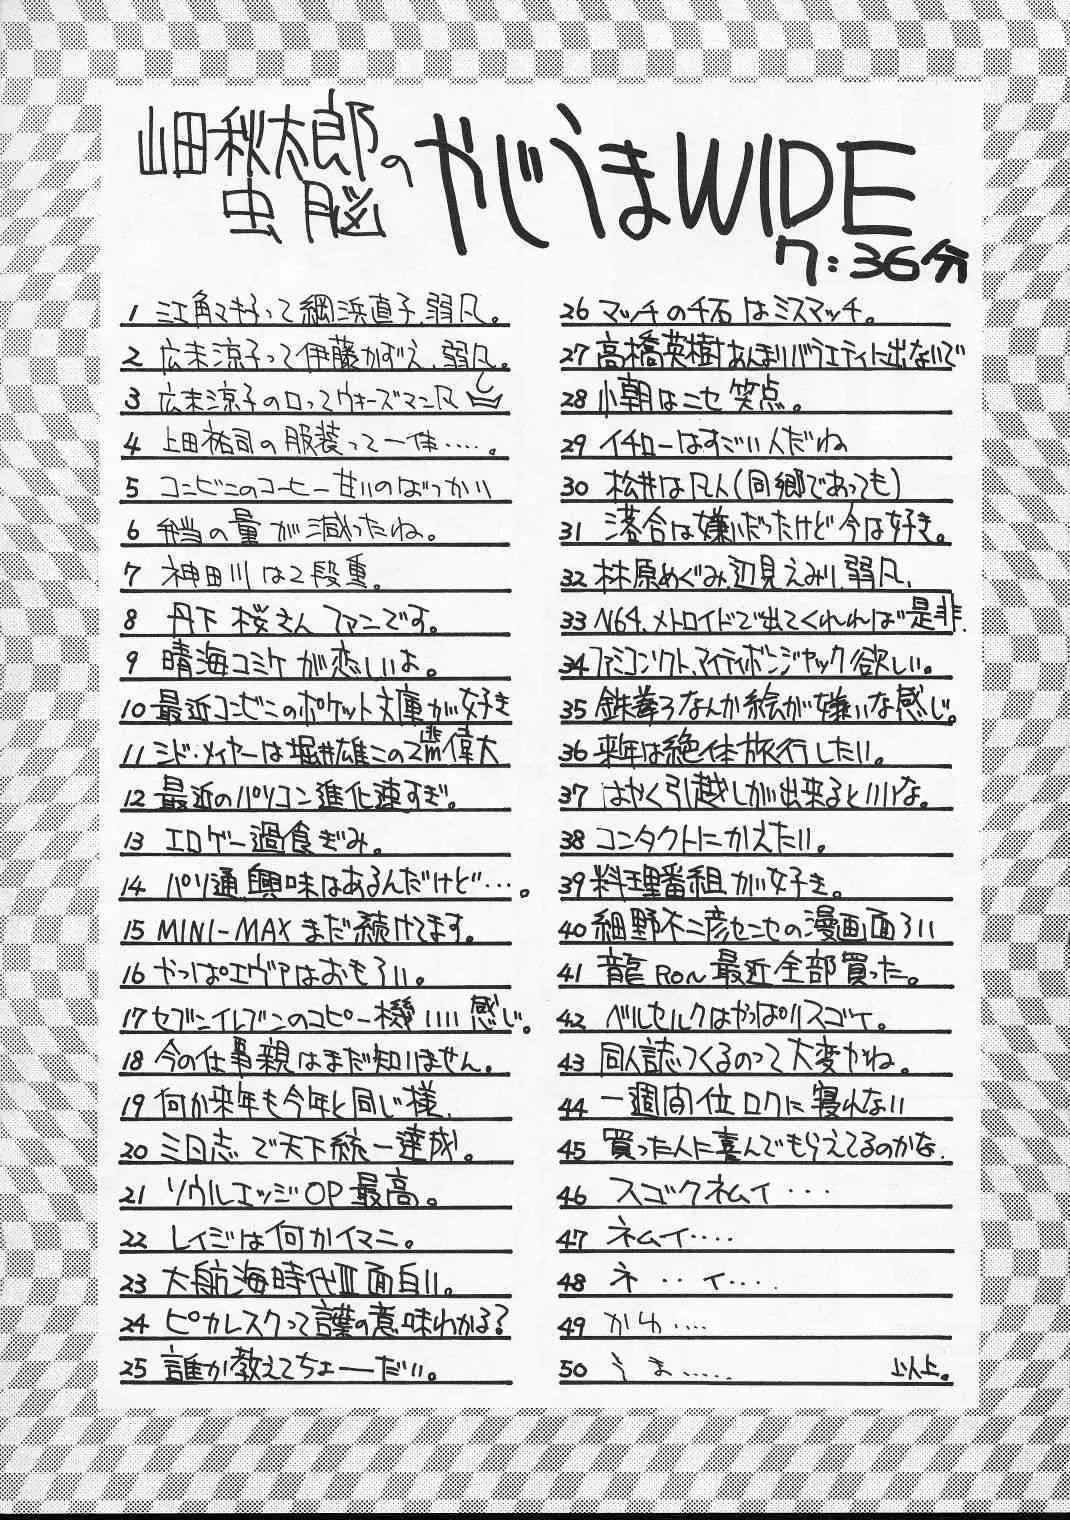 山田秋太郎の
虫脳
やじうまWIDE
7:36分
1 江角マキ子って網浜直子、弱凡。
2 広末涼子って伊藤かずえ、弱凡。
3 広末涼子の口ってウォーズマン凡
4 上田祐司の服装って一体・・・・。
5 コンビニのコーヒー甘いのばっかい
6 弁当の量が減ったね。
7 神田川は2段重。
8 丹下 桜さんファンです。
9 晴海コミケが恋しいよ。
10 最近コンビニのポケット文庫が好き
11 シド・メイヤーは堀井雄二の2歳偉大
12 最近のパソコン進化速すぎ。
13 エロゲー過食ぎみ。
14 パソ通、興味はあるんだけど・・・。
15 MINI-MAXまだ続けてます。
16 やっぱエヴァはおもろい。
17 セブンイレブンのコピー機いい感じ。
18 今の仕事親はまだ知りません。
19 何か来年も今年と同じ様、
20 三日志で天下統一達成。
21 ソウルエッジOP最高。
22 レイジは何かイマニ。
23 大航海時代Ⅲ面白い。
24 ピカレスクって言葉の意味わかる?
25 誰か教えてちょーーだい。
26 マッチの千石はミスマッチ。
27 高橋英樹あんまりバラエティに出ないで
28 小朝はニセ笑点。
29 イチローはすごい人だね
30 松井は凡人(同郷であっても)
31 落合は嫌いだったけど今は好き。
32 林原めぐみ、辺見えみり、弱凡、
33 N64、メトロイドで出てくれれば是非.
34 ファミコンソフト、マイティボンジャック欲しい。
35 鉄拳3なんか絵が嫌いな感じ。
36 来年は絶体旅行したい。
37 はやく引越しが出来るといいな。
38 コンタクトにかえたい。
39 料理番組が好き。
40 細野不二彦センセの漫画面ろい
41 龍 RON 最近全部買った。
42 ベルセルクはやっぱりスゴイ。
43 同人誌つくるのって大変かね。
44 一週間位ロクに寝れない
45 買った人に喜んでもらえてるのかな.
46 スゴクネムイ・・・
47 ネムイ・・・・
48 ネ ・・ イ・・・.
49 かゆ・・・・
50 うま・・・・・. 以上。